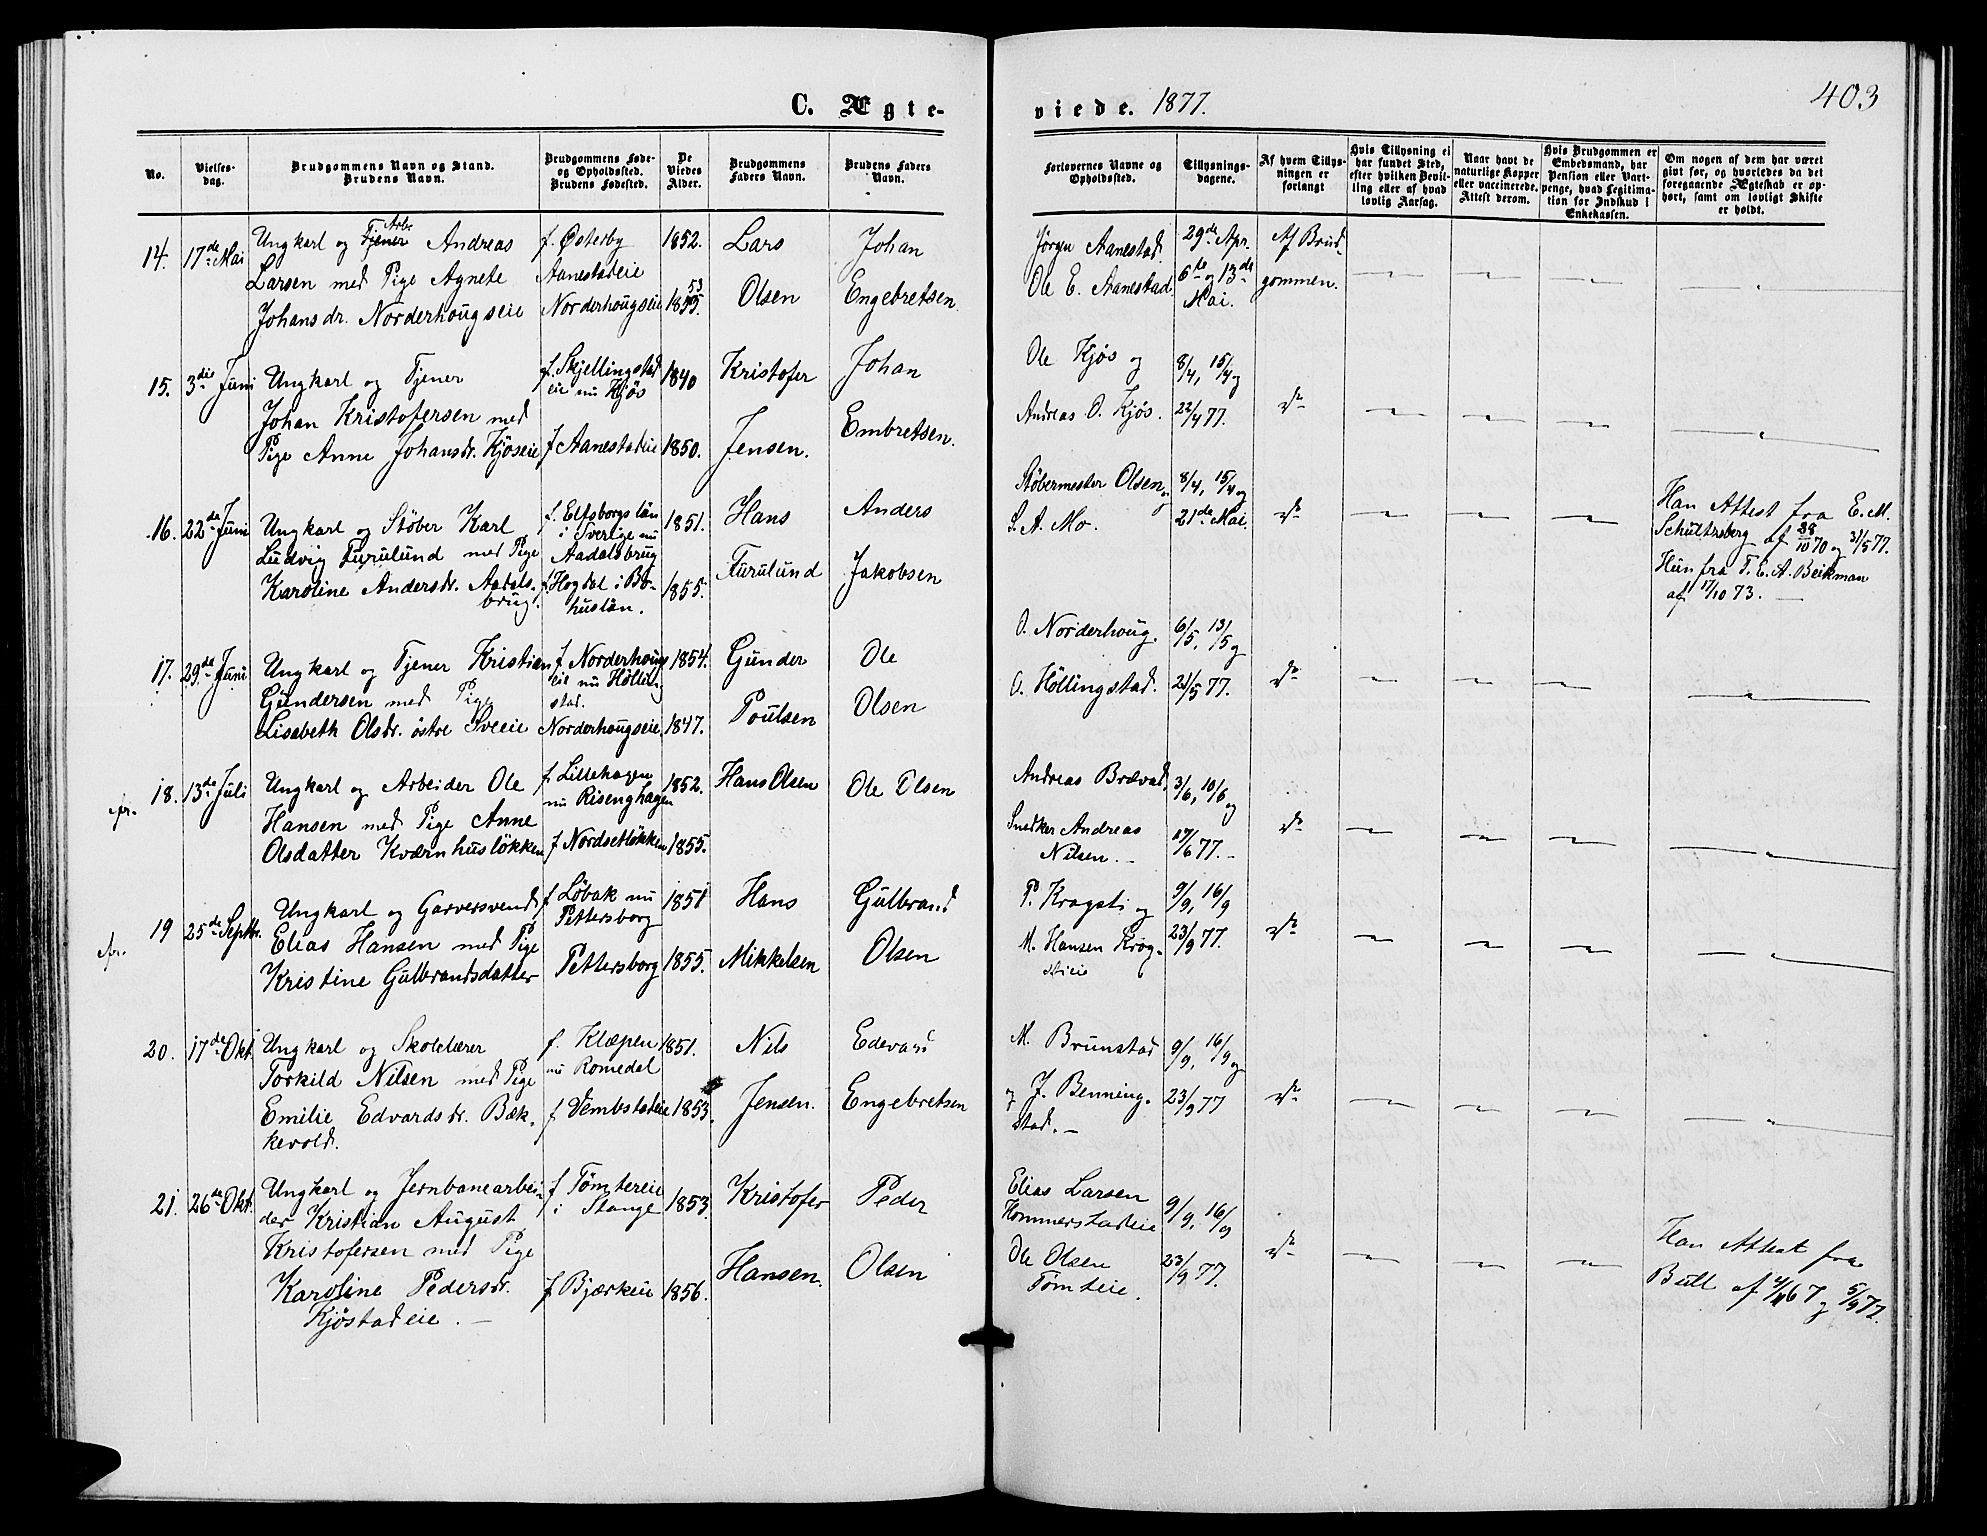 403
C. Ægte-
viede. 1877.
No.
Vielses-
dag.
Brudgommens Navn og Stand.
Brudens Navn.
Brudgommens Føde-
og Opholdssted.
Brudens Fødested.
De
Viedes
Alder.
Brudgommens
Faders Navn.
Brudens Faders
Navn.
Forlovernes Navne og
Opholdssted.
Tillysnings-
dagene.
Af hvem Tillys-
ningen er
forlangt
Hvis Tillysning ei
har fundet Sted,
efter hvilken Bevil-
ling eller af hvad
lovlig Aarsag.
Naar havt de
naturlige Kopper
eller vaccinerede.
Attest derom.
Hvis Brudgommen er
Embedsmand, har
Pension eller Vart-
penge, hvad Legitima-
tion for Indskud i
Enkekassen.
Om nogen af dem har været
gift før, og hvorledes da det
foregaaende Ægteskab er op-
hørt, samt om lovligt Skifte
er holdt.
14. 17de Mai
Ungkarl og Tjener Arbr. Andreas
Larsen med Pige Agnete
Johansdr. Norderhougseie
f. Østerby
Aanestadeie
Norderhougseie
1852.
1855. 53
Lars
Olsen
Johan
Engebretsen.
Jørgen Aanestad.
Ole E. Aanestad.
29de Apr.
6te og 13de
Mai.
Af Brud-
gommen.
15. 3die Juni
Ungkarl og Tjener
Johan Kristofersen med
Pige Anne Johansdr. Kjøseie
f. Skjellingstad
eie nu Kjøs
f Aanestadeie
1840
1850.
Kristofer
Jensen.
Johan
Embretsen.
Ole Kjøs og
Andreas O. Kjøs.
8/4, 15/4 og
22/4 77.
do
16. 22de Juni
Ungkarl og Støber Karl
Ludvig Furulund med Pige
Karoline Andersdr. Aadals-
brug.
f. Elfsborgs län
i Sverige nu
Aadalsbrug
f. Hogdal i Bo-
huslän.
1851.
1855.
Hans
Furulund
Anders
Jakobsen
Støbermester Olsen og
S. A. Mo.
8/4, 15/4 og
21de Mai.
do
Han Attest fra E. M.
Schultzberg af 28/10 70 og 31/5 77.
Hun fra T. E. A. Beikman
af 17/10 73.
17. 29de Juni
Ungkarl og Tjener Kristian
Gundersen med Pige
Lisabeth Olsdr. østre Sveeie
f. Norderhougs
eie nu Hölling
stad.
Norderhougseie
1854.
1847.
Gunder
Poulsen
Ole
Olsen
O. Norderhoug.
O. Höllingstad.
6/5, 13/5 og
21/5 77.
do
18. 13de Juli
Ungkarl og Arbeider Ole
Hansen med Pige Anne
Olsdatter Kværnhusløkken
f. Lillehagen
nu Risenghagen
f Nordsetløkken
1852.
1855.
Hans Olsen
Ole Olsen
Andreas Brævad,
Snedker Andreas
Nilsen.
3/6, 10/6 og
17/6 77.
do
19 25de Septbr.
Ungkarl og Garversvend
Elias Hansen med Pige
Kristine Gulbrandsdatter
f Løbak nu
Pettersborg
Pettersborg
1851
1855.
Hans
Mikkelsen
Gulbrand
Olsen
P. Kragsti og
M. Hansen Krog-
stieie
9/9, 16/9
23/9 77.
do
20. 17de Okt.
Ungkarl og Skolelærer
Torkild Nilsen med Pige
Emilie Edvardsdr. Bæk-
kevold.
f. Klæpen
nu Romedal
f Vembstadeie
1851.
1853.
Nils
Jensen.
Edevard
Engebretsen
M. Brunstad
og J. Benning-
stad.
9/9, 16/9 og
23/9 77
do
21. 26de Okt.
Ungkarl og Jernbanearbei-
der Kristian August
Kristofersen med Pige
Karoline Pedersdr.
Kjøstadeie.
f Tømtereie
i Stange
f Bjærkeie
1853.
1856.
Kristofer
Hansen.
Peder
Olsen
Elias Larsen
Hommerstadeie
Ole Olsen
Tømteie.
9/9, 16/9
23/9 77.
do
Han Attest fra
Bull af 67 og 5/9 77.